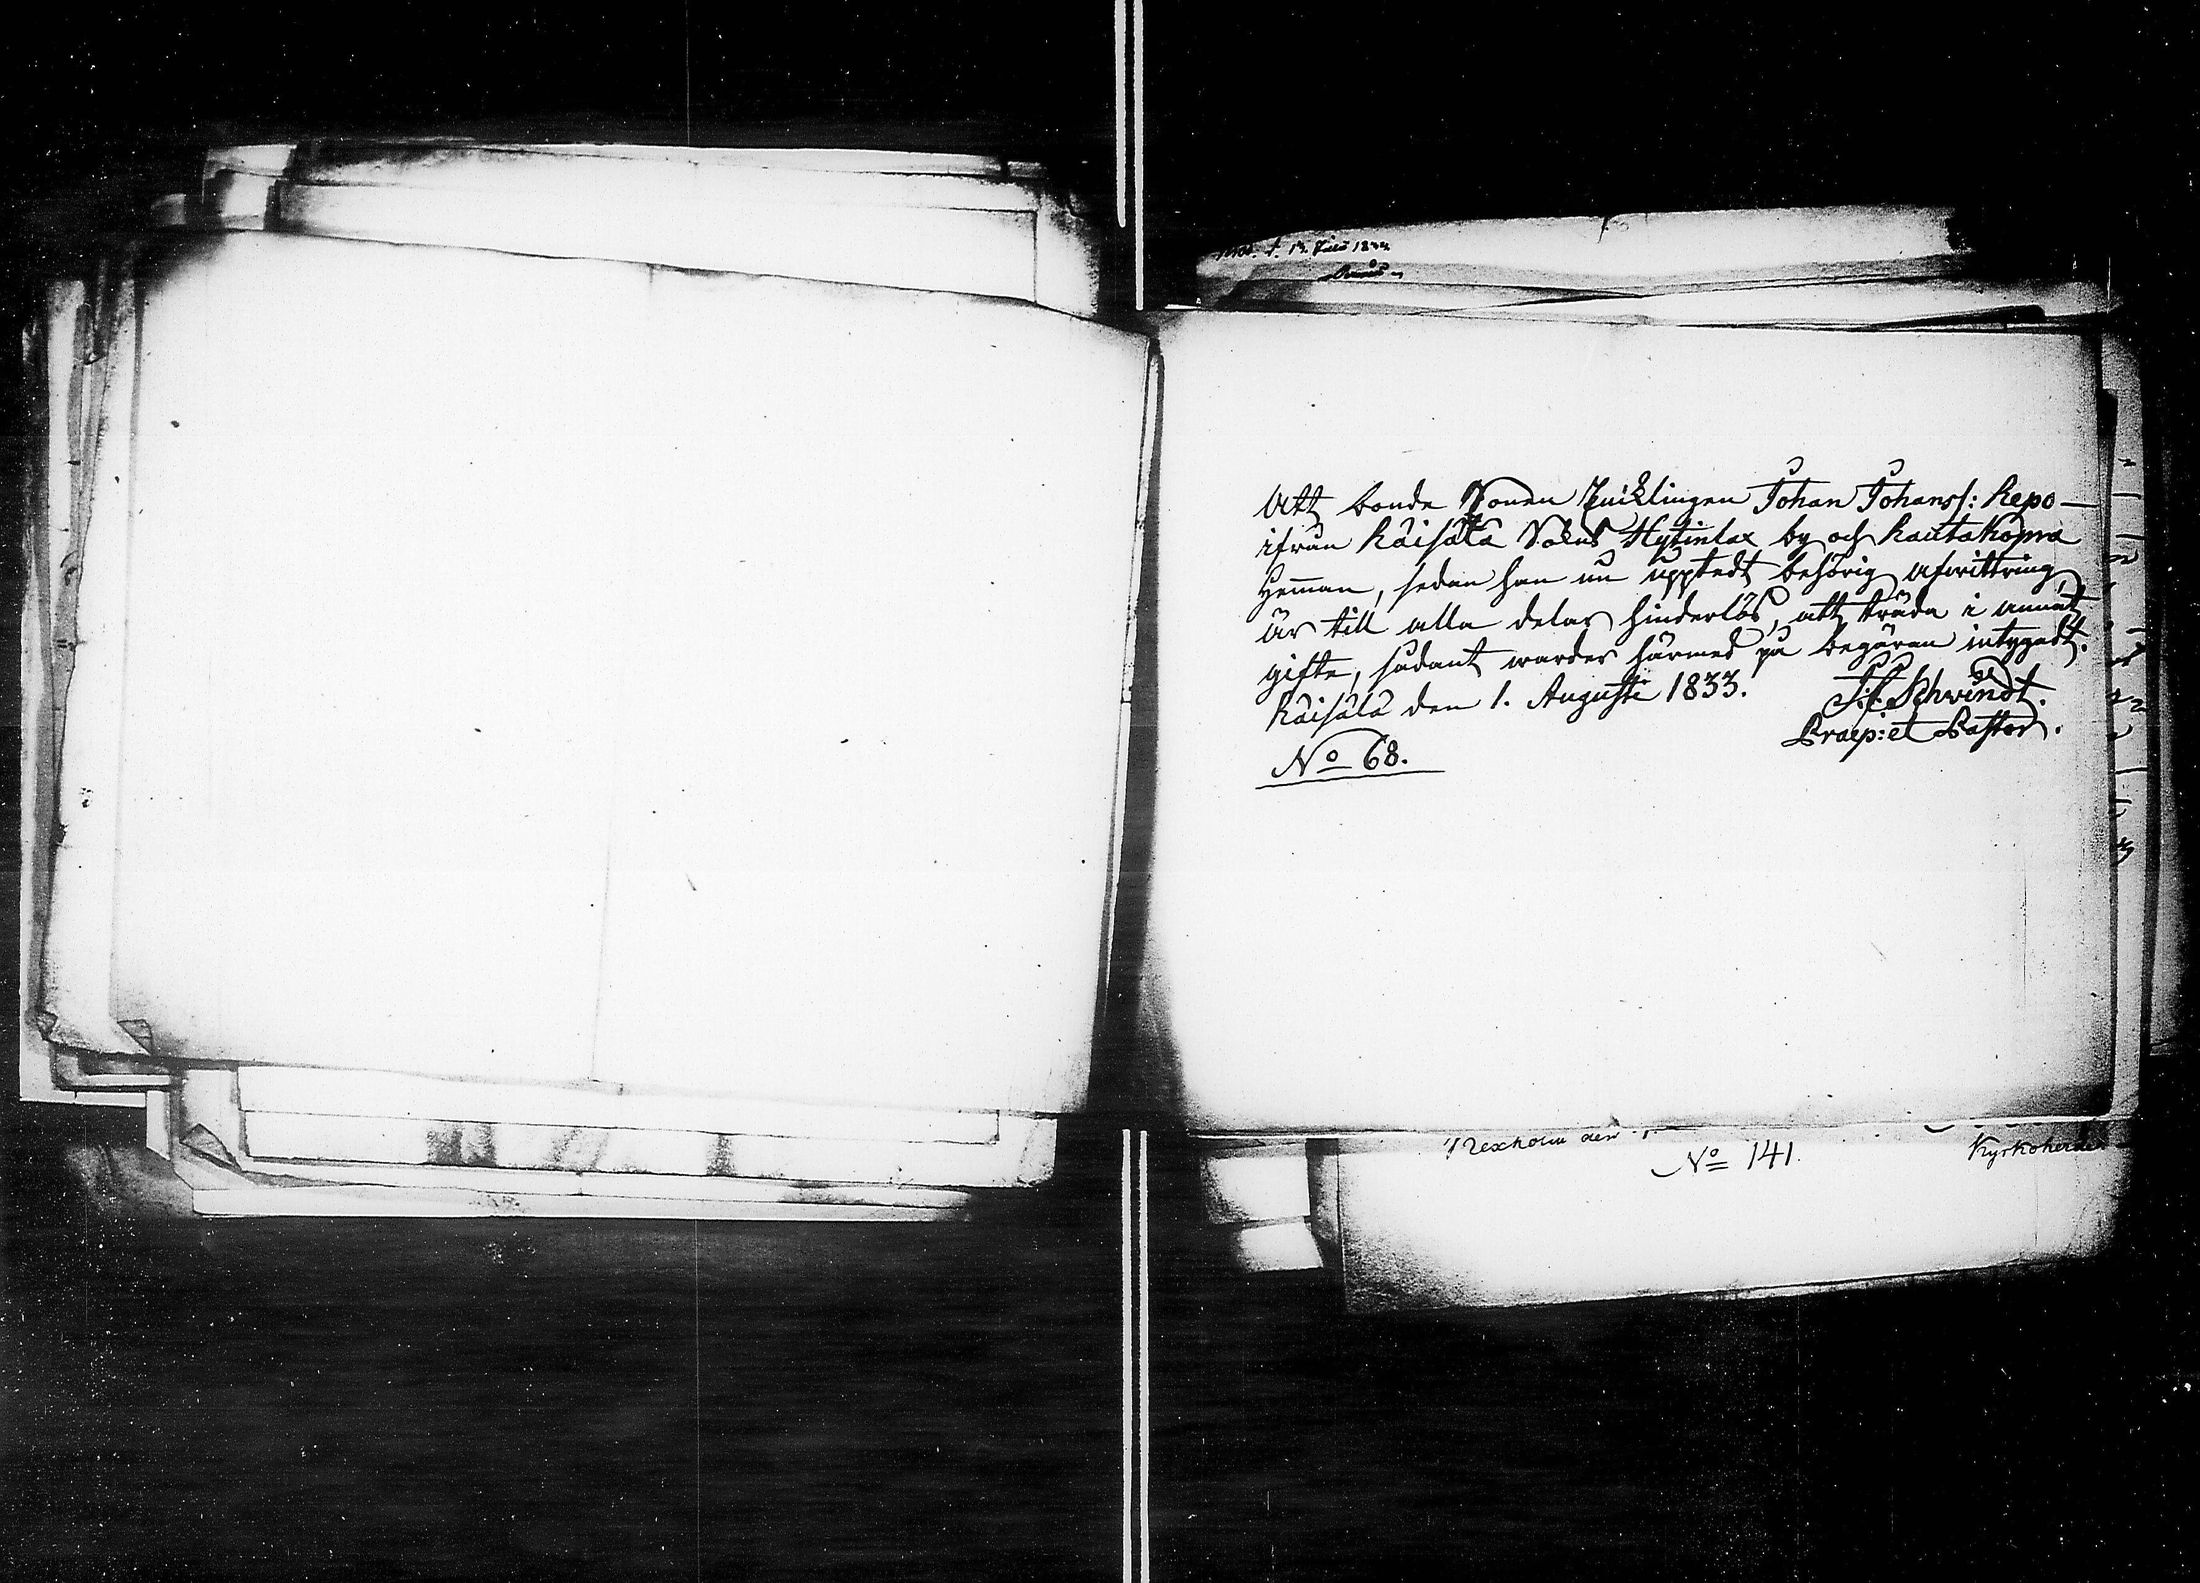 t. 14. Julii 1834
Att bonde Sonen Enklingen Johan Johanss: Repo
ifrån Räisälä Sokns Hytinlax by och Rautakopra
Hemman, sedan han nu upptedt behörig afwittring,
är till alla delar hinderlös, att träda i annat
gifte, sådant warder härmed på begäran intygadt.
Räisälä den 1. Augusti 1833.
J: F. Schwindt.
Praep: et Pastor.
No 68.
Kexholm den
No 141.
Kyrkoherde